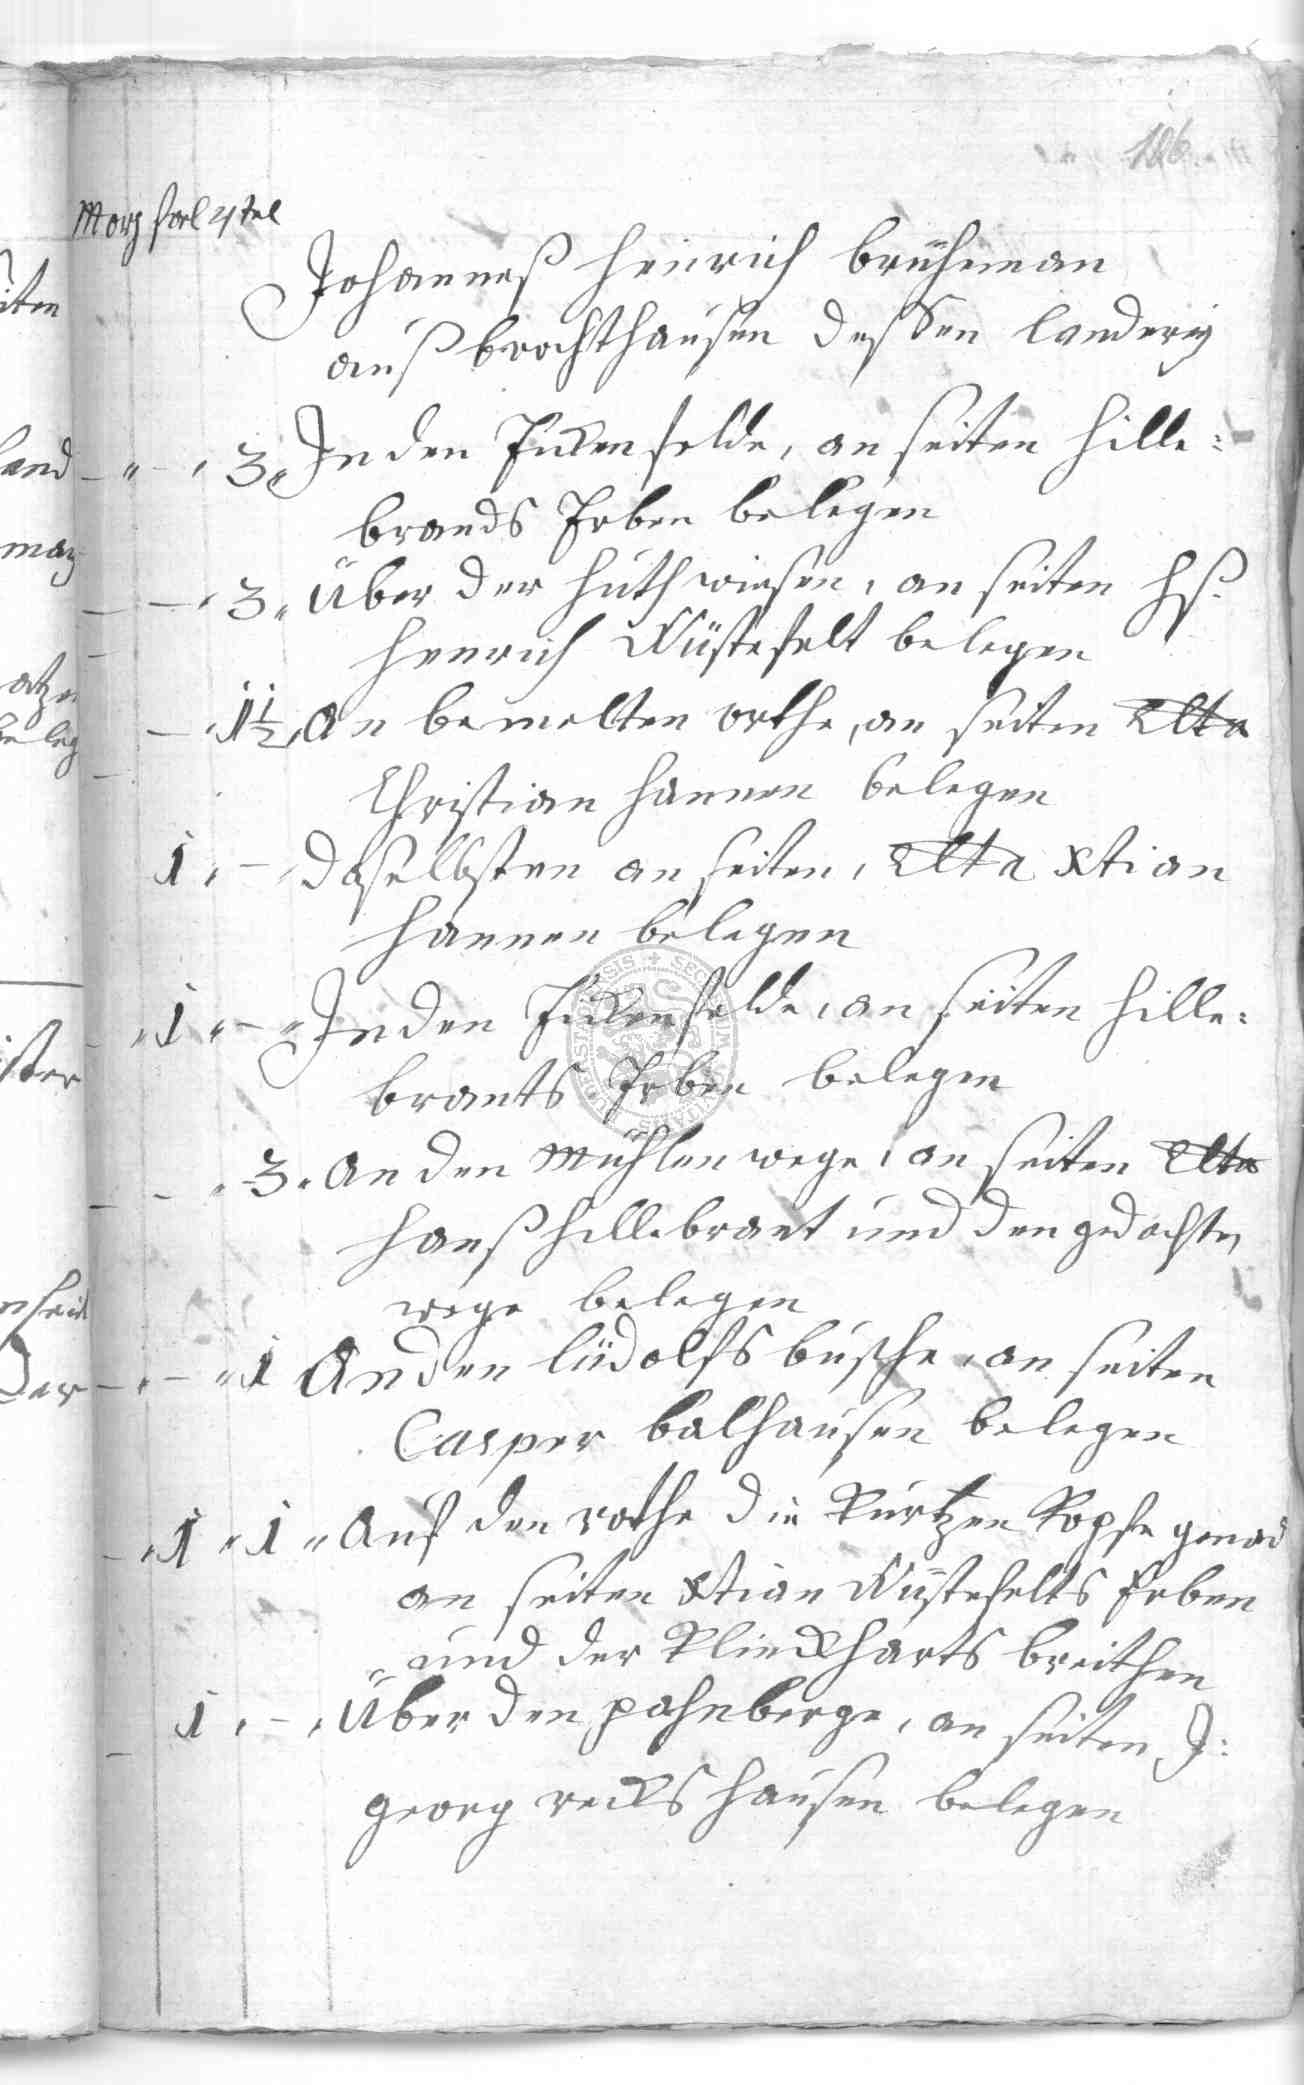 106
Morg forl 4tel
Johannes Henrich brüheman
auß brochthausen dessen landerey
3 In den Fickenfelde, an seiten Hille:
brands Erben belegen
3 Über der Huthwiesen, an seiten Hs:
Henrich Wüstefelt belegen
1½ An bemelten orthe, an seiten
Christian Hannen belegen
1 Daselbsten an seiten, Xtian
Hannen belegen
1 In den Fickenfelde, an seiten Hille:
brants Erben belegen
3 An den Mühlen wege, an seiten
Hanß Hillebrant und den gedachten
wege belegen
1 An den lüdolfs busche, an seiten
Casper balhausen belegen
1 1 Auf den rothe die Kurtzen Köpfe genad
an seiten Xtian Wüstefelts Erben
und der Klinckharts breithen
1 Über den pahnberge, an seiten J:
georg reckshausen belegen